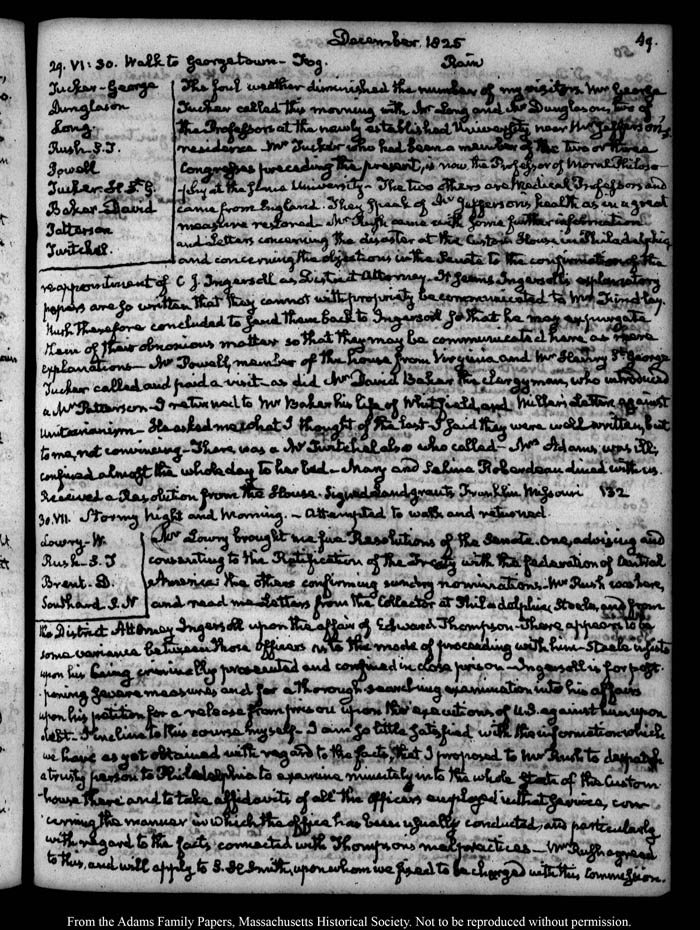 December 1825
49.
29. VI: 30. Walk to Georgetown - Fog. Rain
Tucker - George
Dunglison
Long
Rush. S. T.
Powell
Tucker. H. St. G.
Baker - David
Patterson
Twitchel.
The foul weather diminished the number of my visitors. Mr George
Tucker called this morning with Mr Long and Mr Dunglison, two of
the Professors at the newly established University near Mr Jefferson's
residence. Mr Tucker who had been a member of the two or three
Congresses preceding the present, is now the Professor of Moral Philoso-
phy at the same University - The two others are Medical Professors and
came from England. They speak of Mr Jefferson's health as in a great
measure restored. Mr Rush came with some further information
and Letters concerning the disaster at the Custom House in Philadelphia
and concerning the objections in the Senate to the confirmation of the
reappointment of C. J. Ingersoll as District Attorney. It seems Ingersoll's explanatory
papers are so written that they cannot with propriety be communicated to Mr Findlay.
Rush therefore concluded to send them back to Ingersoll so that he may expurgate
them of their obnoxious matter so that they may be communicated here as mere
explanations - Mr Powell, member of the house from Virginia, and Mr Henry St. George
Tucker called and paid a visit - as did Mr David Baker the clergyman, who introduced
a Mr Patterson - I returned to Mr Baker his life of Whitfield, and Miller's Letters against
Unitarianism - He asked me what I thought of the last - I said they were well written, but
to me, not convincing - There was a Mr Twitchel also who called - Mrs Adams was ill,
confined almost the whole day to her bed - Mary and Selina Roberdeau dined with us.
Received a Resolution from the House. Signed Land grants Franklin Missouri 132
30. VII. Stormy Night and Morning. - Attempted to walk and returned.
Lowry - W.
Rush - S. T
Brent. D.
Southard. S. N
Mr Lowry brought me five Resolutions of the Senate. One, advising and
consenting to the Ratification of the Treaty with the federation of Central
America: the others confirming sundry nominations - Mr Rush was here,
and read me Letters from the Collector at Philadelphia, Steele, and from
the District Attorney Ingersoll upon the affair of Edward Thompson - There appears to be
some variance between those Officers as to the mode of proceeding with him - Steele insists
upon his being criminally prosecuted and confined in close prison - Ingersoll is for post-
poning severe measures and for a thorough searching examination into his affairs
upon his petition for a release from prison upon the executions of U.S. against him upon
debt. - I incline to this course myself - I am so little satisfied with the information which
we have as yet obtained with regard to the facts, that I proposed to Mr Rush to despatch
a trusty person to Philadelphia to examine minutely into the whole state of the Custom
house there and to take affidavits of all the officers employed in that service, con-
cerning the manner in which the office has been usually conducted, and particularly
with regard to the facts connected with Thompson's malpractices - Mr Rush agreed
to this, and will apply to S. H. Smith, upon whom we fixed to be charged with this commission.
From the Adams Family Papers, Massachusetts Historical Society. Not to be reproduced without permission.